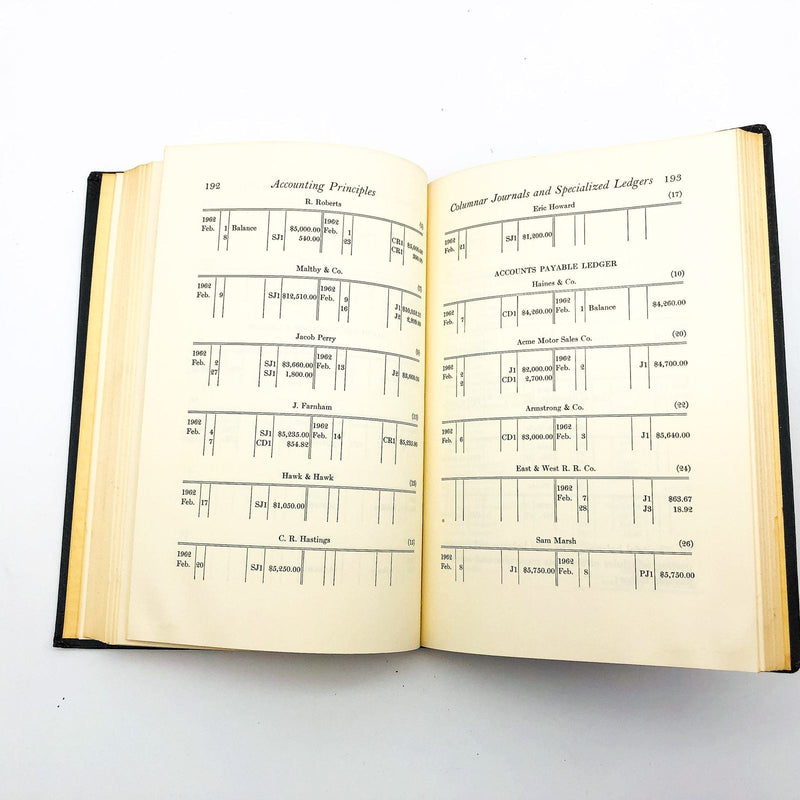 192 Accounting Principles
R. Roberts
1962 1962
Feb. 1 Balance $5,000.00 Feb. 1 CR1
8 SJ1 540.00 23 CR1
Maltby & Co.
1962 1962
Feb. 9 SJ1 $12,510.00 Feb. 9 J1
16 J2
Jacob Perry
1962 1962
Feb. 2 SJ1 $3,660.00 Feb. 13 J2
27 SJ1 1,800.00
J. Farnham
1962 1962
Feb. 4 SJ1 $5,235.00 Feb. 14 CR1 $5,235.00
7 CD1 $54.82
Hawk & Hawk
1962
Feb. 17 SJ1 $1,050.00
C. R. Hastings
1962
Feb. 20 SJ1 $5,250.00
Columnar Journals and Specialized Ledgers 193
Eric Howard (17)
1962
Feb. 21 SJ1 $1,200.00
ACCOUNTS PAYABLE LEDGER
Haines & Co. (10)
1962 1962
Feb. 7 CD1 $4,260.00 Feb. 1 Balance $4,260.00
Acme Motor Sales Co. (20)
1962 1962
Feb. 2 J1 $2,000.00 Feb. 2 J1 $4,700.00
2 CD1 2,700.00
Armstrong & Co. (22)
1962 1962
Feb. 6 CD1 $3,000.00 Feb. 3 J1 $5,640.00
East & West R. R. Co. (24)
1962
Feb. 7 J1 $63.67
28 J3 18.92
Sam Marsh (26)
1962 1962
Feb. 8 J1 $5,750.00 Feb. 8 PJ1 $5,750.00